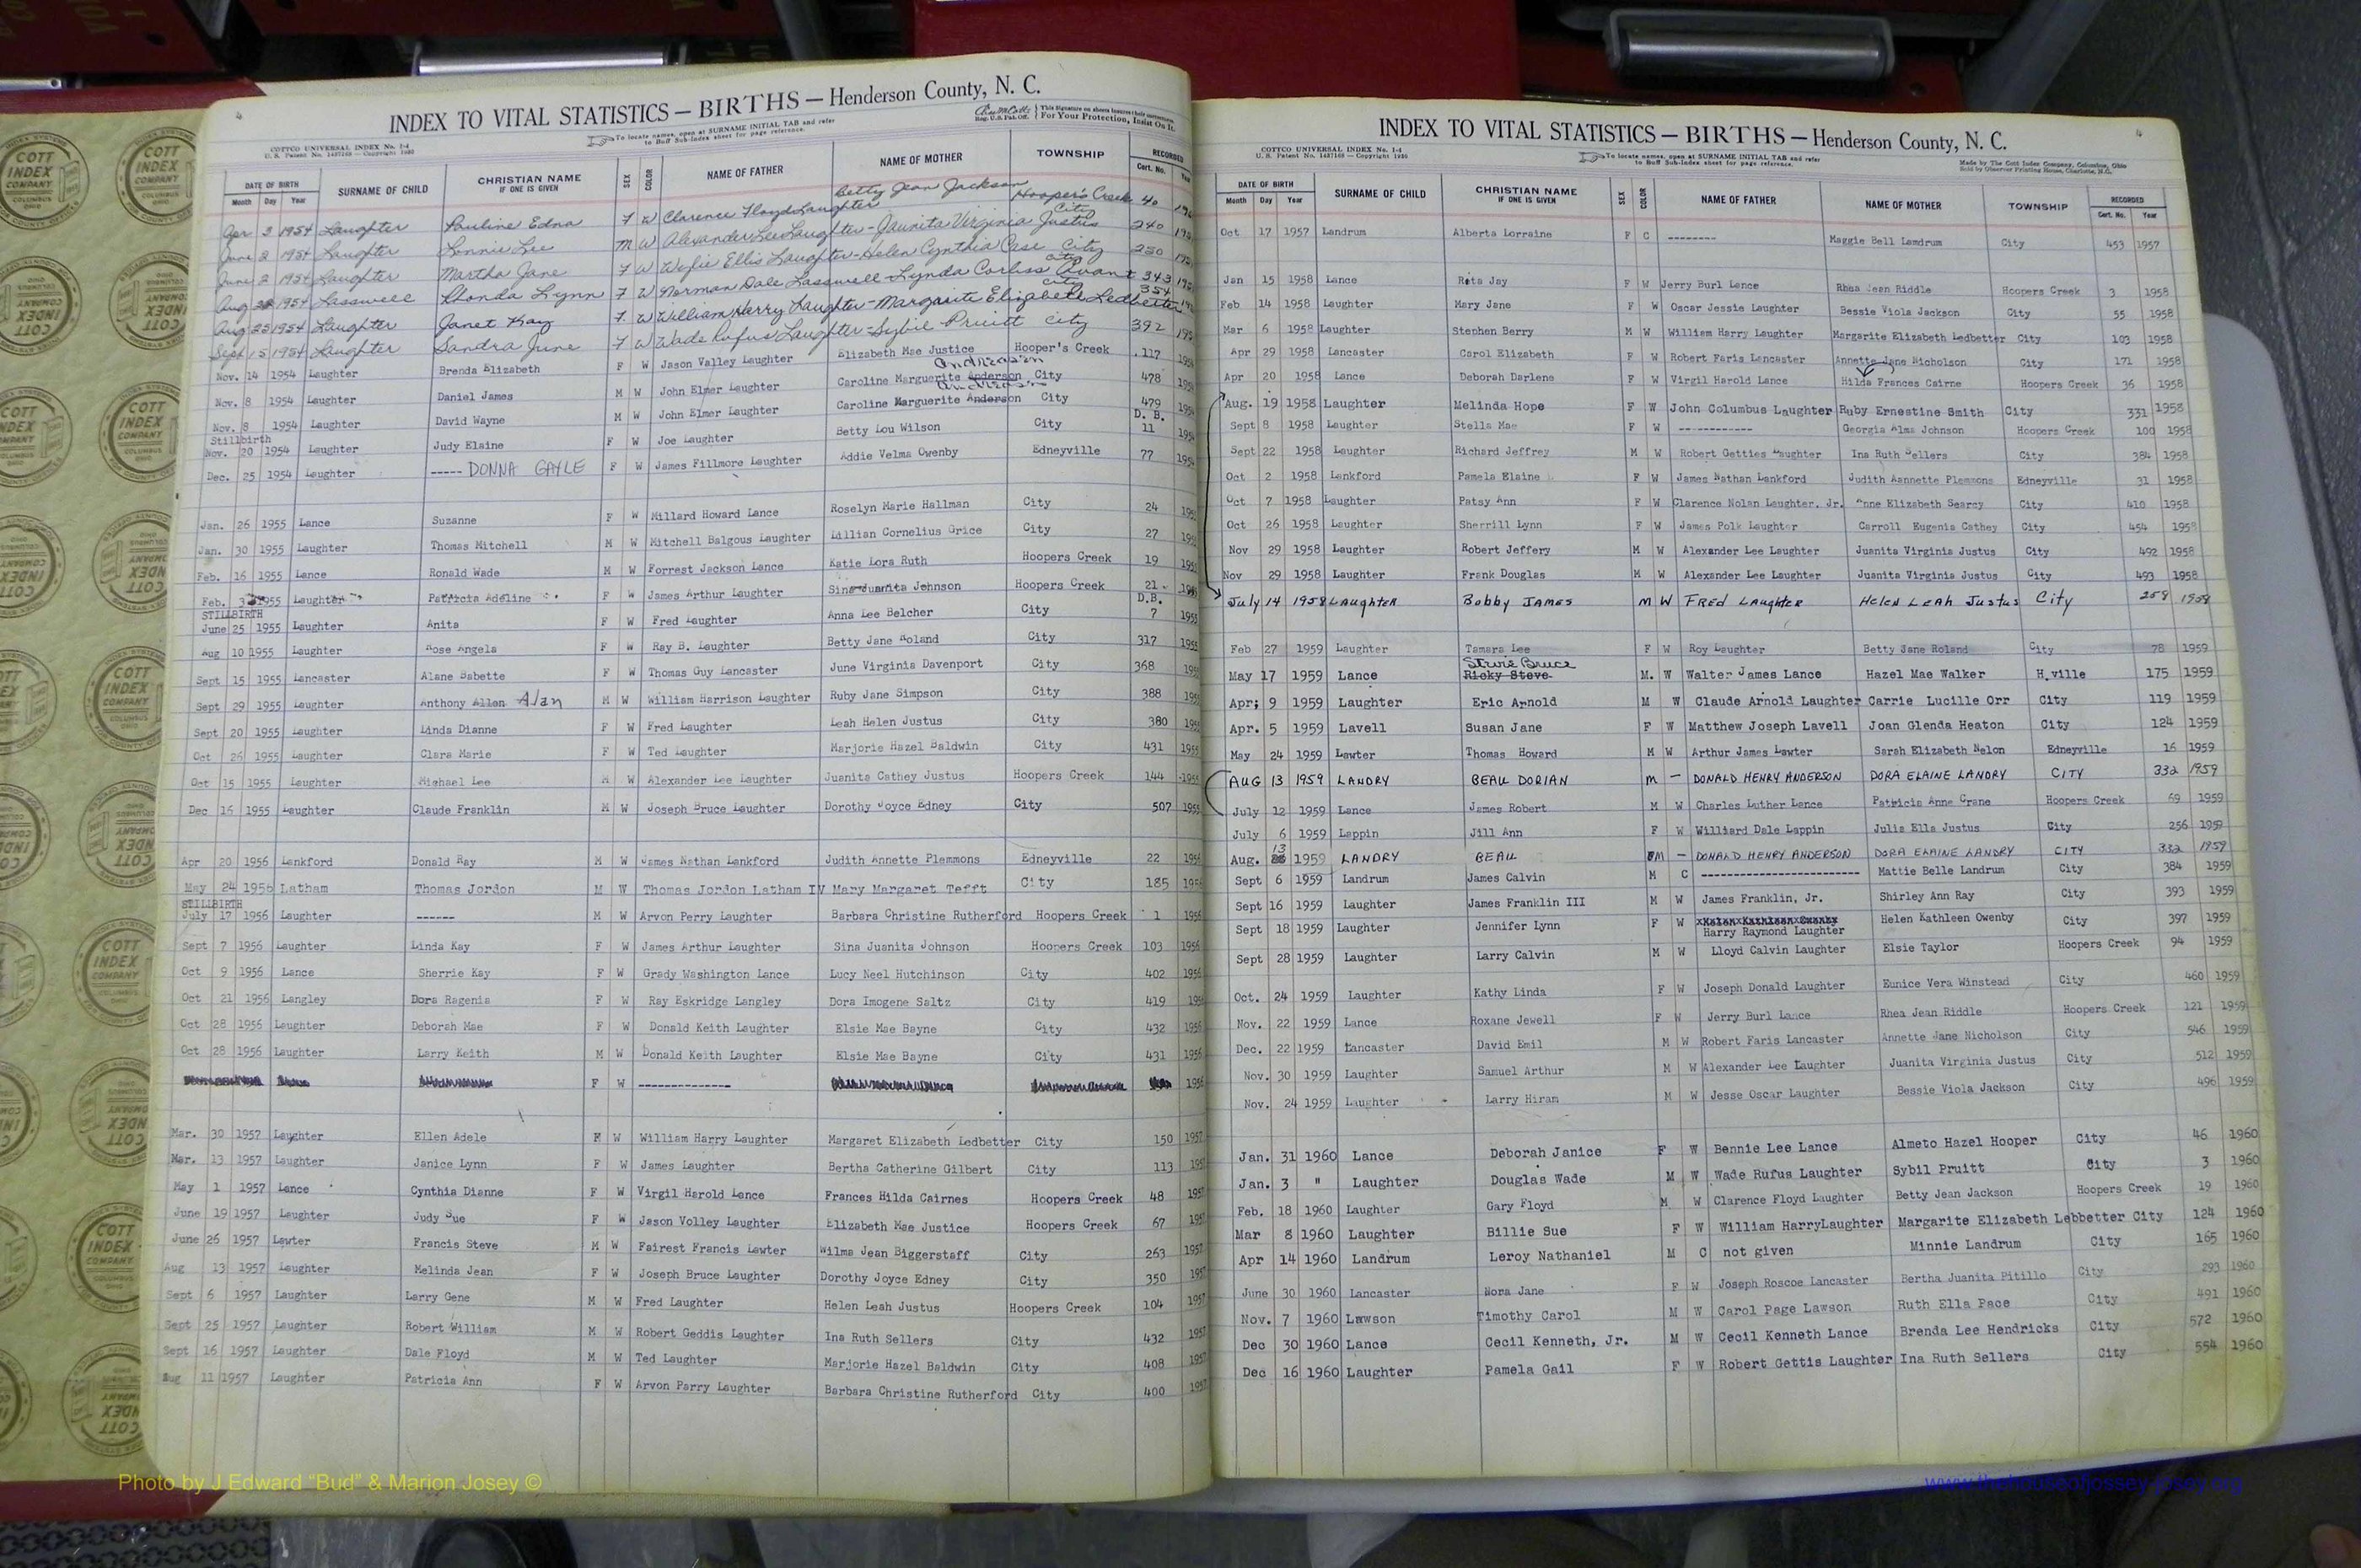 INDEX TO VITAL STATISTICS — BIRTHS — Henderson County, N. C.
COTTCO UNIVERSAL INDEX No. 1-4
U. S. Patent No. 1437169 — Copyright 1930
To locate names, open at SURNAME INITIAL TAB and refer
to Buff Sub-Index sheet for page reference.
This Signature on sheets insures
For Your Protection, Insist On It.
DATE OF BIRTH SURNAME OF CHILD CHRISTIAN NAME IF ONE IS GIVEN SEX COLOR NAME OF FATHER NAME OF MOTHER TOWNSHIP RECORDED
Month Day Year Cert. No. Year
Apr 3 1954 Laughter Pauline Edna F W Clarence Floyd Laughter Betty Jean Jackson Hooper's Creek 40
June 2 1954 Laughter Lonnie Lee M W Alexander Lee Laughter - Jaunita Virginia Justus City 240
June 2 1954 Laughter Martha Jane F W Wylie Ellis Laughter - Helen Cynthia Case City 250
Aug 1954 Lasswell Rhonda Lynn F W Norman Dale Lasswell - Lynda Corliss Avant City 343
Aug 25 1954 Laughter Janet Kay F W William Harry Laughter - Margarite Elizabeth Ledbetter City 354
Sept 15 1954 Laughter Sandra June F W Wade Rufus Laughter - Sybil Pruitt City 392
Nov. 14 1954 Laughter Brenda Elizabeth F W Jason Valley Laughter Elizabeth Mae Justice Hooper's Creek 117 1954
Nov. 8 1954 Laughter Daniel James M W John Elmer Laughter Caroline Marguerite Anderson Andreasen City 478 1954
Nov. 8 1954 Laughter David Wayne M W John Elmer Laughter Caroline Marguerite Anderson Andreasen City 479 1954
Stillbirth D. B.
Nov. 20 1954 Laughter Judy Elaine F W Joe Laughter Betty Lou Wilson City 11 1954
Dec. 25 1954 Laughter ----- DONNA GAYLE F W James Fillmore Laughter Addie Velma Owenby Edneyville 77 1954
Jan. 26 1955 Lance Suzanne F W Millard Howard Lance Roselyn Marie Hallman City 24 1955
Jan. 30 1955 Laughter Thomas Mitchell M W Mitchell Balgous Laughter Lillian Cornelius Grice City 27 1955
Feb. 16 1955 Lance Ronald Wade M W Forrest Jackson Lance Katie Lora Ruth Hoopers Creek 19 1955
Feb. 3 1955 Laughter Patricia Adeline F W James Arthur Laughter Sina Juanita Johnson Hoopers Creek 21 1955
STILLBIRTH D.B.
June 25 1955 Laughter Anita F W Fred Laughter Anna Lee Belcher City 7 1955
Aug 10 1955 Laughter Rose Angela F W Ray B. Laughter Betty Jane Roland City 317 1955
Sept 15 1955 Lancaster Alane Babette F W Thomas Guy Lancaster June Virginia Davenport City 368 1955
Sept 29 1955 Laughter Anthony Allen Alan M W William Harrison Laughter Ruby Jane Simpson City 388 1955
Sept 20 1955 Laughter Linda Dianne F W Fred Laughter Leah Helen Justus City 380 1955
Oct 26 1955 Laughter Clara Marie F W Ted Laughter Marjorie Hazel Baldwin City 431 1955
Oct 15 1955 Laughter Michael Lee M W Alexander Lee Laughter Juanita Cathey Justus Hoopers Creek 144 1955
Dec 16 1955 Laughter Claude Franklin M W Joseph Bruce Laughter Dorothy Joyce Edney City 507 1955
Apr 20 1956 Lankford Donald Ray M W James Nathan Lankford Judith Annette Plemmons Edneyville 22 1956
May 24 1956 Latham Thomas Jordon M W Thomas Jordon Latham IV Mary Margaret Tefft City 185 1956
STILLBIRTH
July 17 1956 Laughter ------ M W Arvon Perry Laughter Barbara Christine Rutherford Hoopers Creek 1 1956
Sept 7 1956 Laughter Linda Kay F W James Arthur Laughter Sina Juanita Johnson Hoopers Creek 103 1956
Oct 9 1956 Lance Sherrie Kay F W Grady Washington Lance Lucy Neel Hutchinson City 402 1956
Oct 21 1956 Langley Dora Ragenia F W Ray Eskridge Langley Dora Imogene Saltz City 419 1956
Oct 28 1956 Laughter Deborah Mae F W Donald Keith Laughter Elsie Mae Bayne City 432 1956
Oct 28 1956 Laughter Larry Keith M W Donald Keith Laughter Elsie Mae Bayne City 431 1956
F W -------------- 1956
Mar. 30 1957 Laughter Ellen Adele F W William Harry Laughter Margaret Elizabeth Ledbetter City 150 1957
Mar. 13 1957 Laughter Janice Lynn F W James Laughter Bertha Catherine Gilbert City 113 1957
May 1 1957 Lance Cynthia Dianne F W Virgil Harold Lance Frances Hilda Cairnes Hoopers Creek 48 1957
June 19 1957 Laughter Judy Sue F W Jason Volley Laughter Elizabeth Mae Justice Hoopers Creek 67 1957
June 26 1957 Lawter Francis Steve M W Fairest Francis Lawter Wilma Jean Biggerstaff City 263 1957
Aug 13 1957 Laughter Melinda Jean F W Joseph Bruce Laughter Dorothy Joyce Edney City 350 1957
Sept 6 1957 Laughter Larry Gene M W Fred Laughter Helen Leah Justus Hoopers Creek 104 1957
Sept 25 1957 Laughter Robert William M W Robert Geddis Laughter Ina Ruth Sellers City 432 1957
Sept 16 1957 Laughter Dale Floyd M W Ted Laughter Marjorie Hazel Baldwin City 408 1957
Aug 11 1957 Laughter Patricia Ann F W Arvon Parry Laughter Barbara Christine Rutherford City 400 1957
Photo by J Edward “Bud” & Marion Josey ©
INDEX TO VITAL STATISTICS — BIRTHS — Henderson County, N. C.
COTTCO UNIVERSAL INDEX No. 1-4
U. S. Patent No. 1437169 — Copyright 1930
To locate names, open at SURNAME INITIAL TAB and refer
to Buff Sub-Index sheet for page reference.
Made by The Cott Index Company, Columbus, Ohio
Sold by Observer Printing House, Charlotte, N.C.
DATE OF BIRTH SURNAME OF CHILD CHRISTIAN NAME IF ONE IS GIVEN SEX COLOR NAME OF FATHER NAME OF MOTHER TOWNSHIP RECORDED
Month Day Year Cert. No. Year
Oct 17 1957 Landrum Alberta Lorraine F C -------- Maggie Bell Landrum City 453 1957
Jan 15 1958 Lance Rita Jay F W Jerry Burl Lance Rhea Jean Riddle Hoopers Creek 3 1958
Feb 14 1958 Laughter Mary Jane F W Oscar Jessie Laughter Bessie Viola Jackson City 55 1958
Mar 6 1958 Laughter Stephen Berry M W William Harry Laughter Margarite Elizabeth Ledbetter City 103 1958
Apr 29 1958 Lancaster Carol Elizabeth F W Robert Faris Lancaster Annette Jane Nicholson City 171 1958
Apr 20 1958 Lance Deborah Darlene F W Virgil Harold Lance Hilda Frances Cairne Hoopers Creek 36 1958
Aug. 19 1958 Laughter Melinda Hope F W John Columbus Laughter Ruby Ernestine Smith City 331 1958
Sept 8 1958 Laughter Stella Mae F W ------------ Georgia Alma Johnson Hoopers Creek 100 1958
Sept 22 1958 Laughter Richard Jeffrey M W Robert Getties Laughter Ina Ruth Sellers City 384 1958
Oct 2 1958 Lankford Pamela Elaine F W James Nathan Lankford Judith Aannette Plemmons Edneyville 31 1958
Oct 7 1958 Laughter Patsy Ann F W Clarence Nolan Laughter, Jr. Anne Elizabeth Searcy City 410 1958
Oct 26 1958 Laughter Sherrill Lynn F W James Polk Laughter Carroll Eugenia Cathey City 454 1958
Nov 29 1958 Laughter Robert Jeffery M W Alexander Lee Laughter Juanita Virginia Justus City 492 1958
Nov 29 1958 Laughter Frank Douglas M W Alexander Lee Laughter Juanita Virginia Justus City 493 1958
July 14 1958 Laughter Bobby JAMES M W FRED LAughter Helen LEAh Justus City 258 1958
Feb 27 1959 Laughter Tamara Lee F W Roy Laughter Betty Jane Roland City 78 1959
Stevie Bruce
May 17 1959 Lance Ricky Steve M. W Walter James Lance Hazel Mae Walker H.ville 175 1959
Apr; 9 1959 Laughter Eric Arnold M W Claude Arnold Laughter Carrie Lucille Orr City 119 1959
Apr. 5 1959 Lavell Susan Jane F W Matthew Joseph Lavell Joan Glenda Heaton City 124 1959
May 24 1959 Lawter Thomas Howard M W Arthur James Lawter Sarah Elizabeth Nelon Edneyville 16 1959
AUG 13 1959 LANDRY BEAU DORIAN M — DONALD HENRY ANDERSON DORA ELAINE LANDRY CITY 332 1959
July 12 1959 Lance James Robert M W Charles Luther Lance Patricia Anne Crane Hoopers Creek 69 1959
July 6 1959 Lappin Jill Ann F W Williard Dale Lappin Julia Ella Justus City 256 1959
Aug. 13 1959 LANDRY BEAU M — DONALD HENRY ANDERSON DORA ELAINE LANDRY CITY 332 1959
Sept 6 1959 Landrum James Calvin M C ------------------------ Mattie Belle Landrum City 384 1959
Sept 16 1959 Laughter James Franklin III M W James Franklin, Jr. Shirley Ann Ray City 393 1959
Sept 18 1959 Laughter Jennifer Lynn F W Harry Raymond Laughter Helen Kathleen Owenby City 397 1959
Sept 28 1959 Laughter Larry Calvin M W Lloyd Calvin Laughter Elsie Taylor Hoopers Creek 94 1959
Oct. 24 1959 Laughter Kathy Linda F W Joseph Donald Laughter Eunice Vera Winstead City 460 1959
Nov. 22 1959 Lance Roxane Jewell F W Jerry Burl Lance Rhea Jean Riddle Hoopers Creek 121 1959
Dec. 22 1959 Lancaster David Emil M W Robert Faris Lancaster Annette Jane Nicholson City 546 1959
Nov. 30 1959 Laughter Samuel Arthur M W Alexander Lee Laughter Juanita Virginia Justus City 512 1959
Nov. 24 1959 Laughter Larry Hiram M W Jesse Oscar Laughter Bessie Viola Jackson City 496 1959
Jan. 31 1960 Lance Deborah Janice F W Bennie Lee Lance Almeto Hazel Hooper City 46 1960
Jan. 3 " Laughter Douglas Wade M W Wade Rufus Laughter Sybil Pruitt City 3 1960
Feb. 18 1960 Laughter Gary Floyd M W Clarence Floyd Laughter Betty Jean Jackson Hoopers Creek 19 1960
Mar 8 1960 Laughter Billie Sue F W William HarryLaughter Margarite Elizabeth Lebbetter City 124 1960
Apr 14 1960 Landrum Leroy Nathaniel M C not given Minnie Landrum City 165 1960
June 30 1960 Lancaster Nora Jane F W Joseph Roscoe Lancaster Bertha Juanita Pitillo City 293 1960
Nov. 7 1960 Lawson Timothy Carol M W Carol Page Lawson Ruth Ella Pace City 491 1960
Dec 30 1960 Lance Cecil Kenneth, Jr. M W Cecil Kenneth Lance Brenda Lee Hendricks City 572 1960
Dec 16 1960 Laughter Pamela Gail F W Robert Gettis Laughter Ina Ruth Sellers City 554 1960
www.thehouseofjossey-josey.org
COTT INDEX COMPANY COLUMBUS OHIO